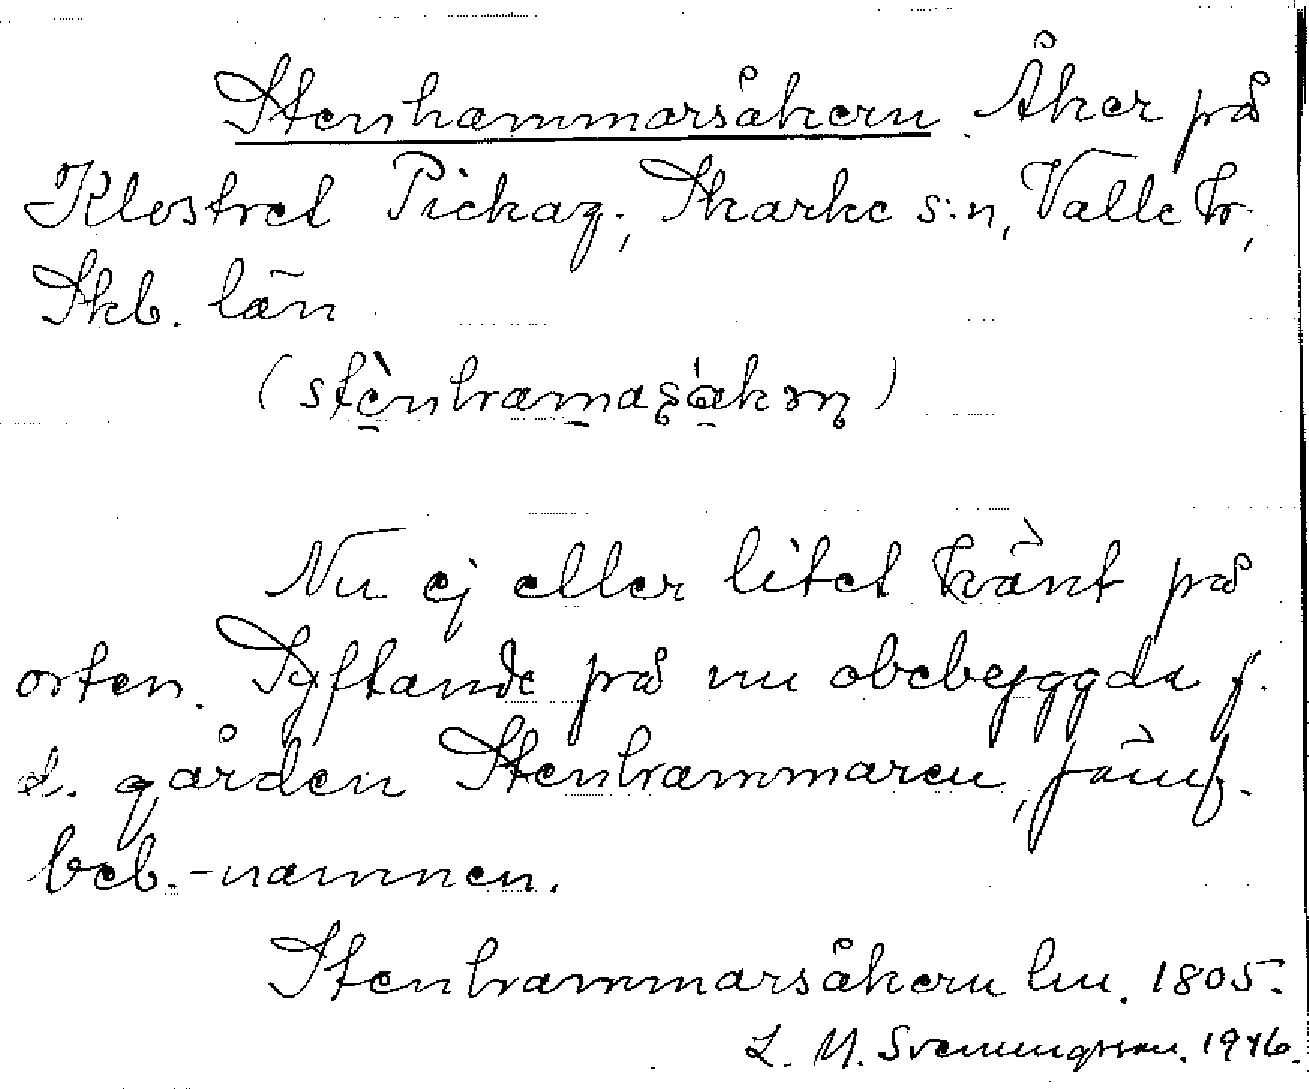 Stenhammarsåkern. Åker på
Klostret Pickag., Skarke s:n, Valle hr,
Skb. län
(stènhamaṣåkəṇ)
Nu ej eller litet känt på
orten. Syftande på nu obebyggda f.
d. gården Stenhammaren, jämf.
beb.-namnen.
Stenhammarsåkern lm. 1805.
L. M. Svenungsson. 1946.